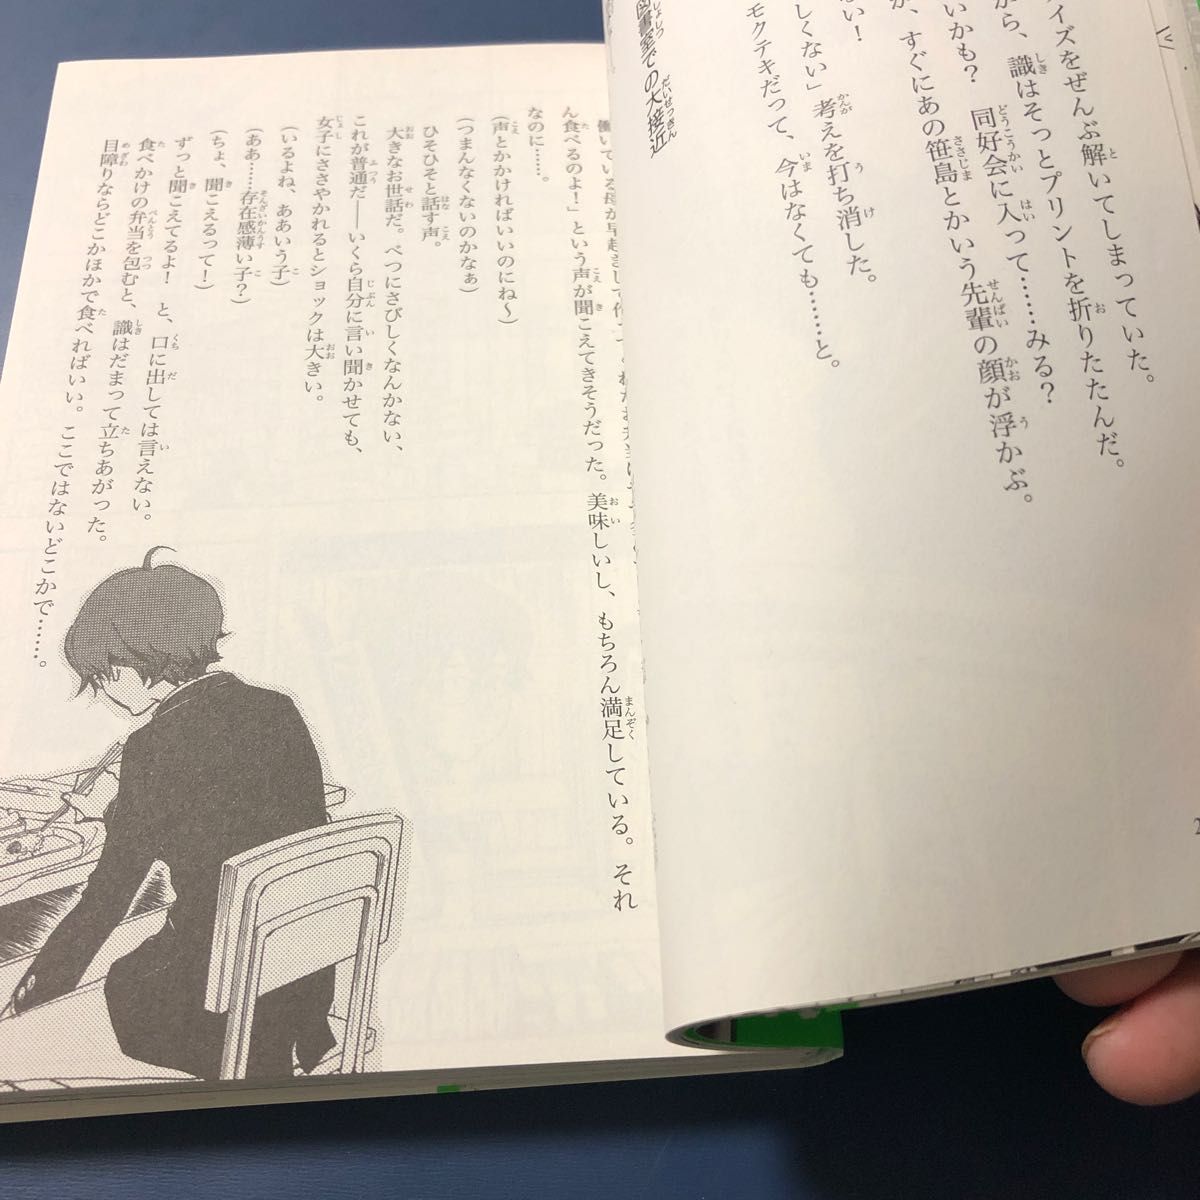 イズをぜんぶ解いてしまっていた。
から、識はそっとプリントを折りたたんだ。
いかも？　同好会に入って……みる？
が、すぐにあの笹島とかいう先輩の顔が浮かぶ。
ない！
しくない」考えを打ち消した。
モクテキだって、今はなくても……と。
図書室での大接近
働いている母が早起きして作って
ん食べるのよ！」という声が聞こえてきそうだった。美味しいし、もちろん満足している。それ
なのに……。
（声とかかければいいのにね〜）
（つまんなくないのかなぁ）
ひそひそと話す声。
大きなお世話だ。べつにさびしくなんかない、
これが普通だ――いくら自分に言い聞かせても、
女子にささやかれるとショックは大きい。
（いるよね、ああいう子）
（ああ……存在感薄い子？）
（ちょ、聞こえるって！）
ずっと聞こえてるよ！　と、口に出しては言えない。
食べかけの弁当を包むと、識はだまって立ちあがった。
目障りならどこかほかで食べればいい。ここではないどこかで……。
2